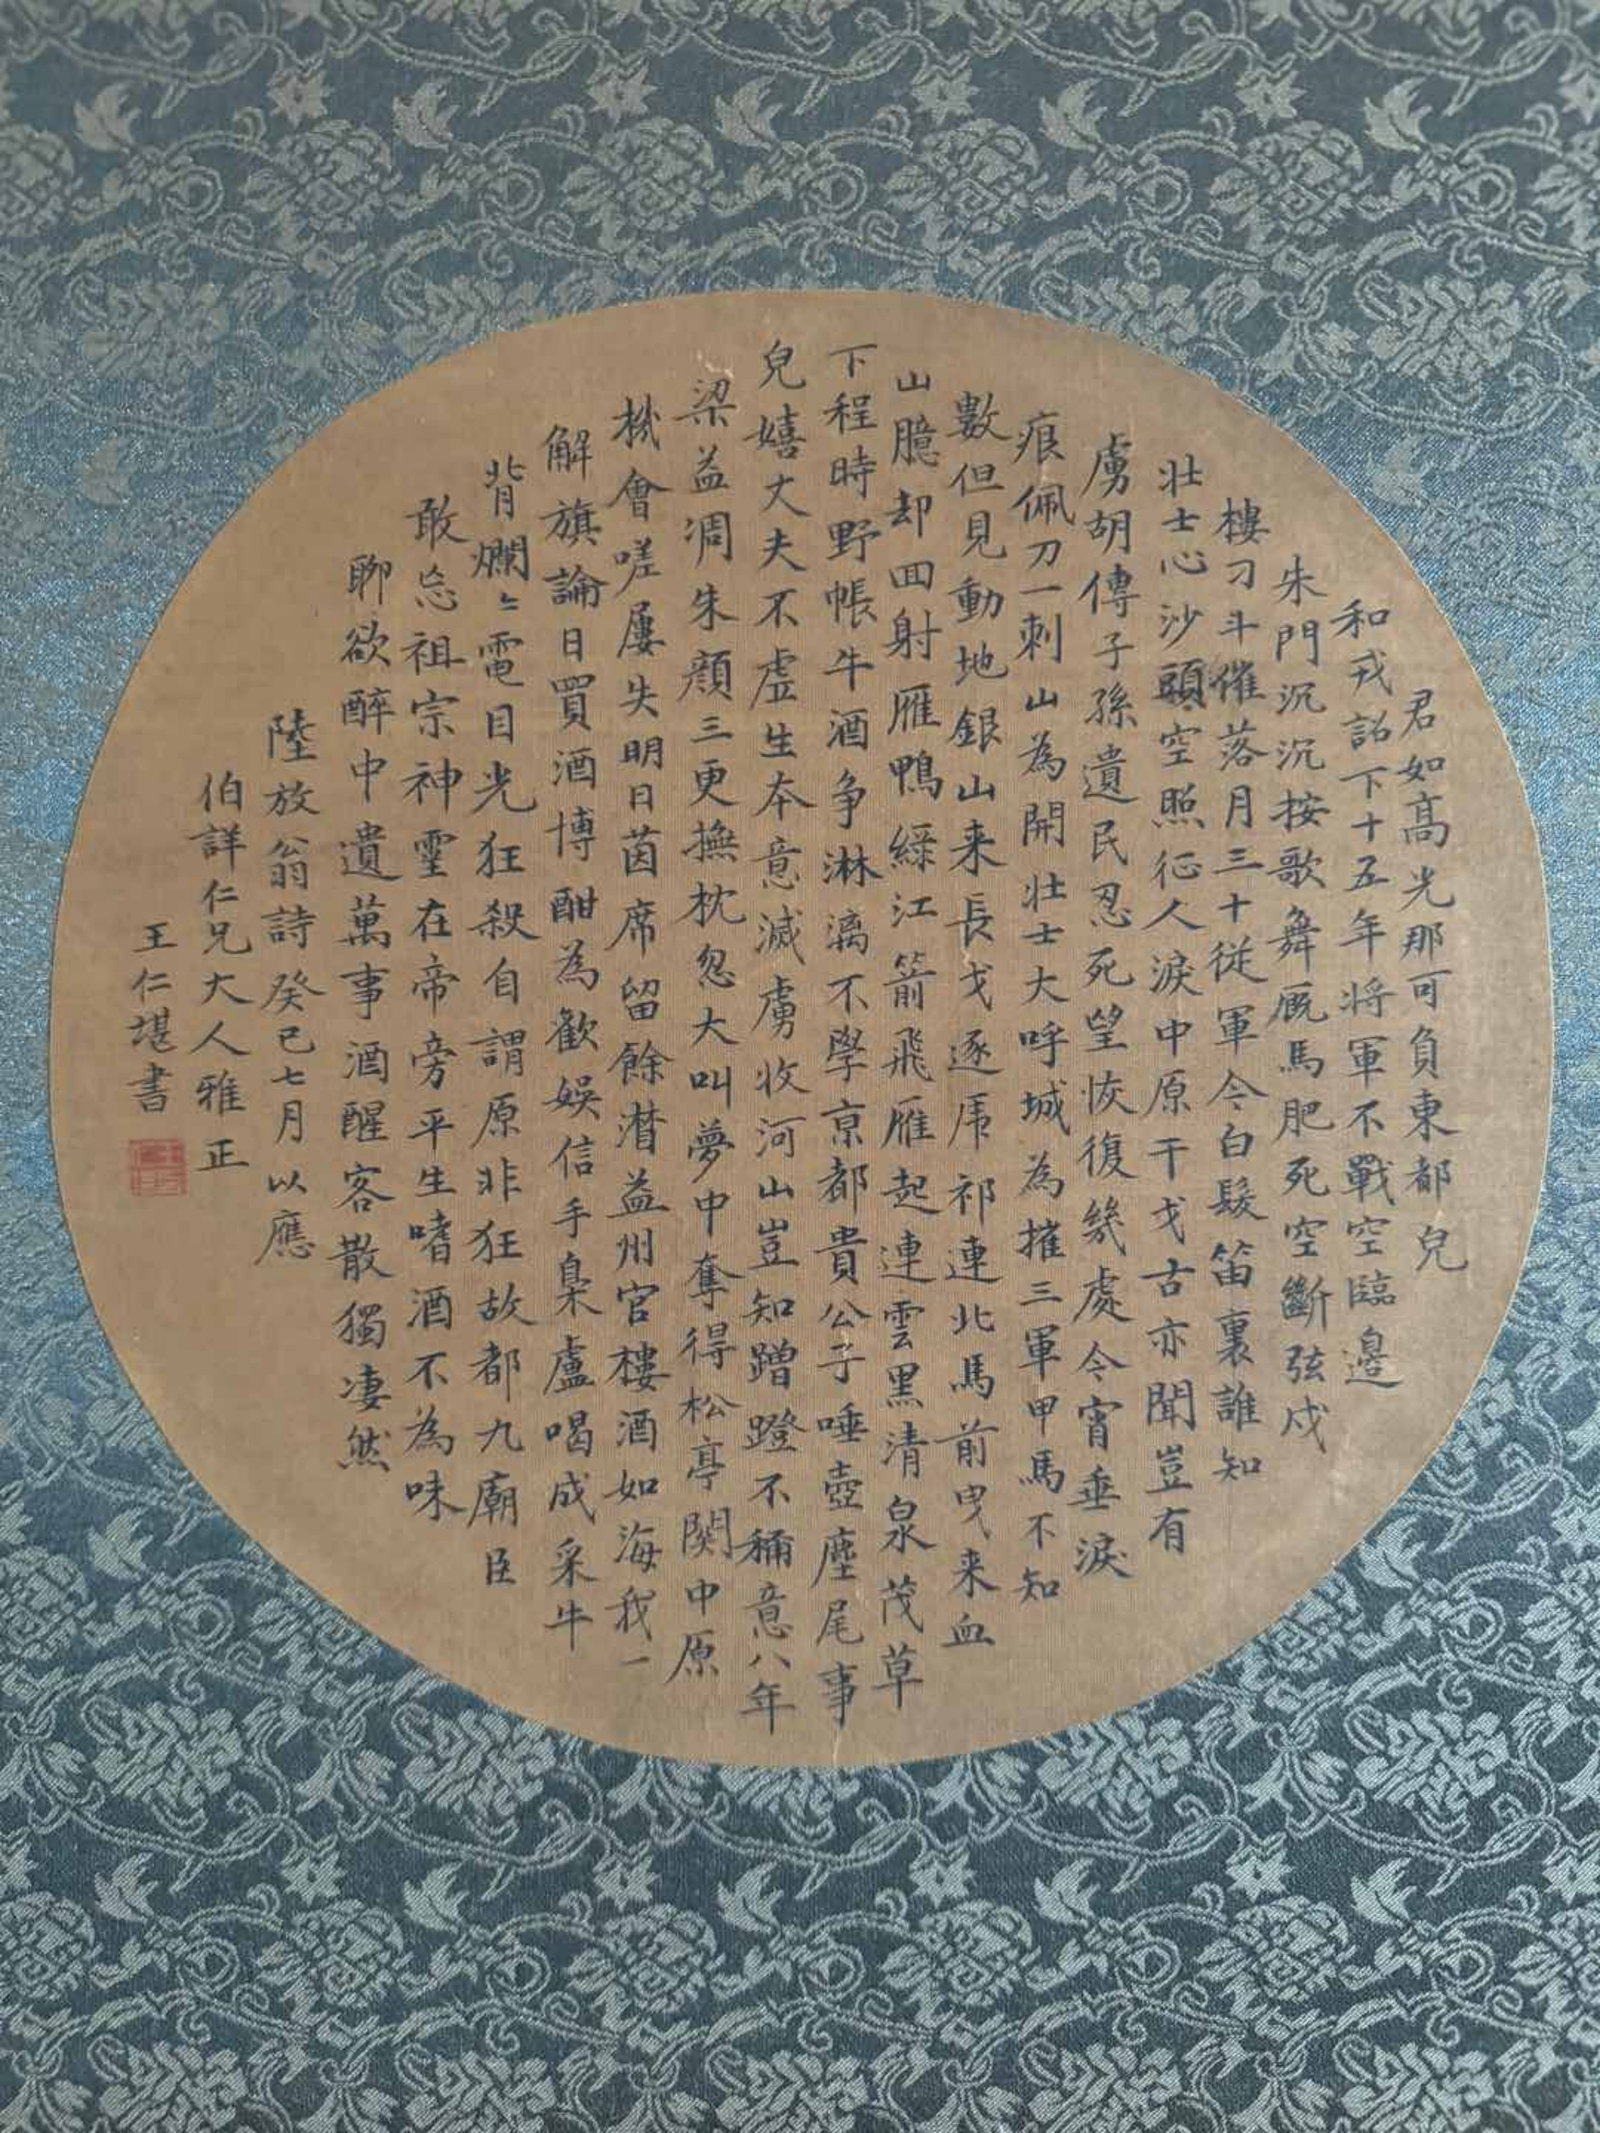 君如高光那可負東都兒
和戎詔下十五年將軍不戰空臨邊
朱門沉沉按歌舞厩馬肥死空斷弦戍
樓刁斗催落月三十從軍今白髮笛裏誰知
壯士心沙頭空照征人淚中原干戈古亦聞豈有
虜胡傳子孫遺民忍死望恢復幾處今宵垂淚
痕佩刀一刺山為開壯士大呼城為摧三軍甲馬不知
數但見動地銀山来長戈逐虎祁連北馬前曳来血
山臆却回射雁鴨綠江箭飛雁起連雲黑清泉茂草
下程時野帳牛酒争淋漓不學京都貴公子唾壺麈尾事
兒嬉丈夫不虛生本意滅虜收河山豈知蹭蹬不稱意八年
梁益凋朱顏三更撫枕忽大叫夢中奪得松亭関中原
機會嗟屢失明日茵席留餘潸益州官樓酒如海我一
解旗論日買酒博酣為歡娛信手梟盧喝成采牛
背爛〻電目光狂殺自謂原非狂故都九廟臣
敢忘祖宗神靈在帝旁平生嗜酒不為味
聊欲醉中遺萬事酒醒客散獨凄然
陸放翁詩癸巳七月以應
伯詳仁兄大人雅正
王仁堪書